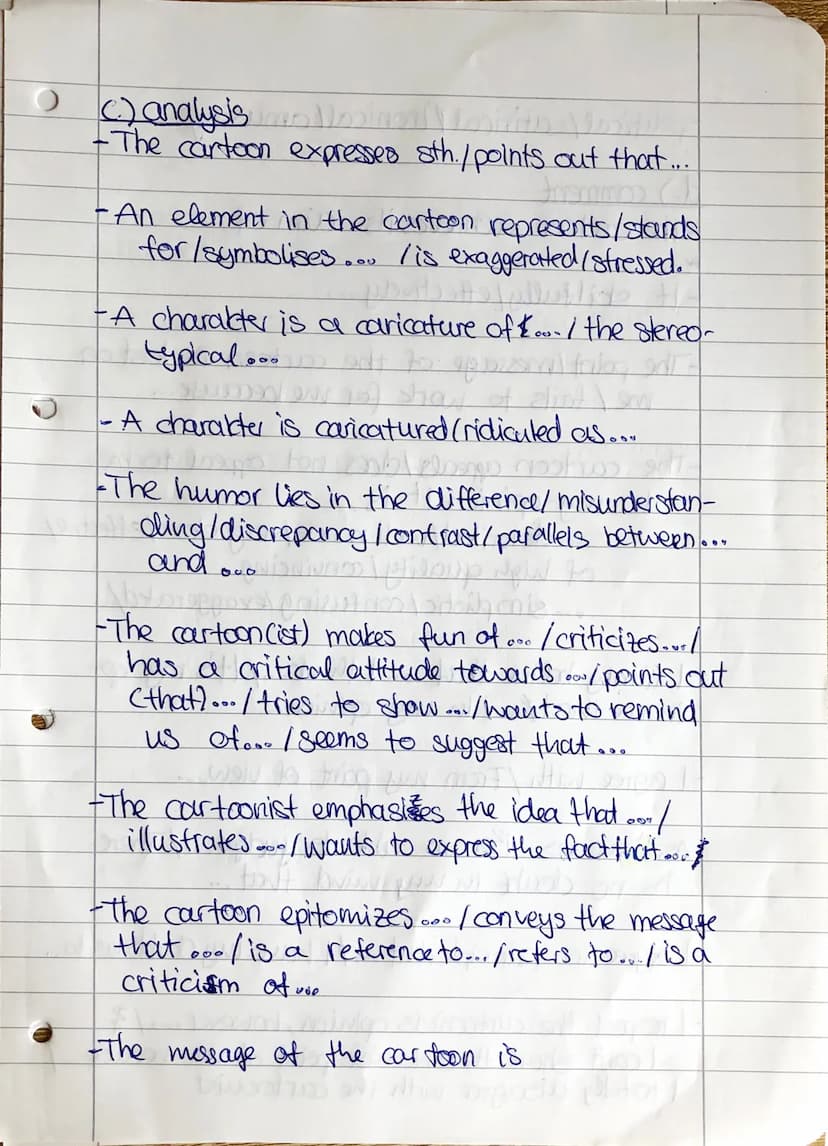 c.) analysis
- The cartoon expresses sth./points out that...
- An element in the cartoon represents/stands
for/symbolises... /is exaggerated/stressed.
- A charakter is a caricature of ... / the stereo-
typical...
- A charakter is caricatured/ridiculed as...
- The humor lies in the difference/misunderstan-
ding/discrepancy/contrast/parallels between...
and ...
- The cartoon(ist) makes fun of... /criticizes.../
has a critical attitude towards .../points out
(that)... /tries to show .../wants to remind
us of... /seems to suggest that...
- The cartoonist emphasizes the idea that .../
illustrates .../wants to express the fact that...
- The cartoon epitomizes... /conveys the message
that .../is a reference to.../refers to.../is a
criticism of...
- The message of the cartoon is